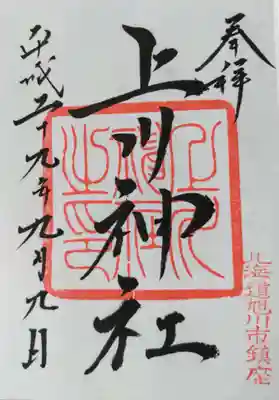 奉拝
上川神社
上川神社之印
平成二十九年九月九日
北海道旭川市鎮座